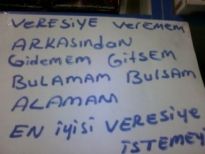 VERESİYE VEREMEM
ARKASINDAN
GİDEMEM GİTSEM
BULAMAM BULSAM
ALAMAM
EN İYİSİ VERESİYE
İSTEMEYİ